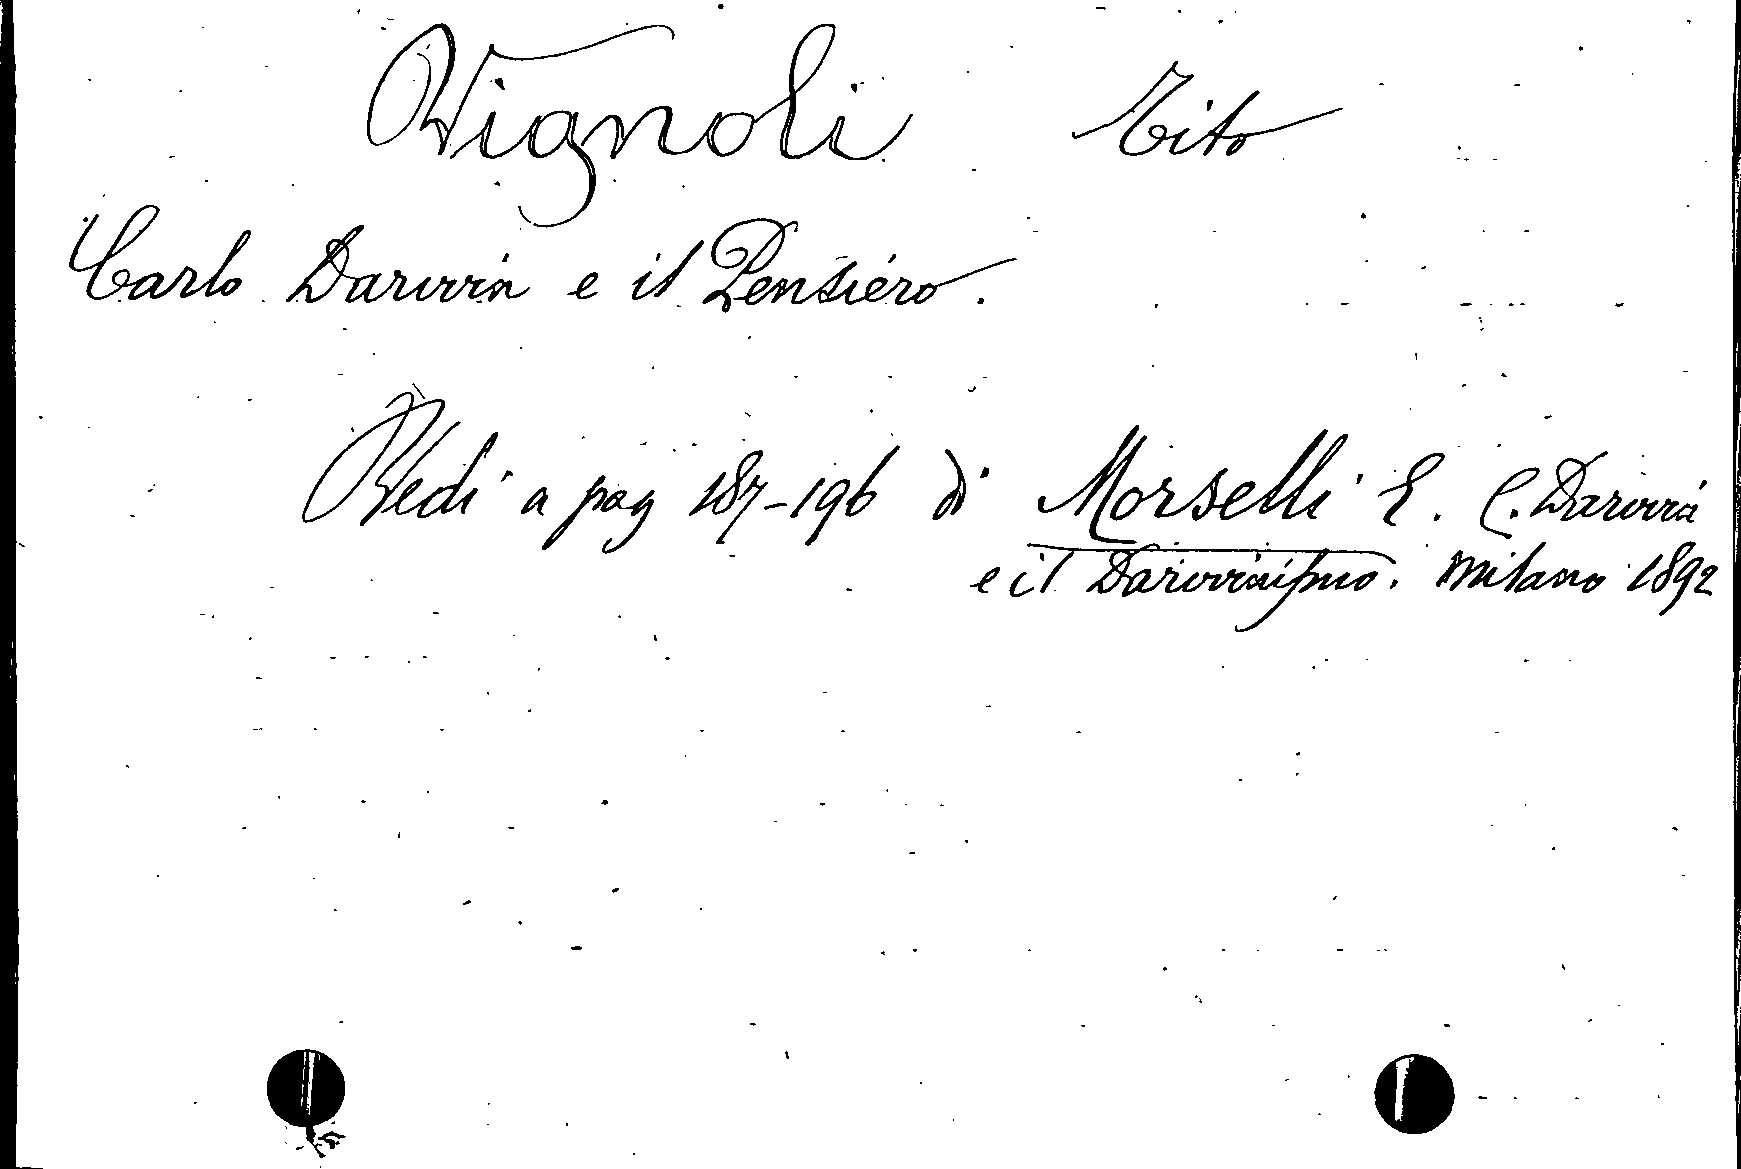 Vignoli Tito
Carlo Darwin e il Pensiero.
Vedi a pag 187-196 di Morselli E. C. Darwin
e il Darwinismo. Milano 1892